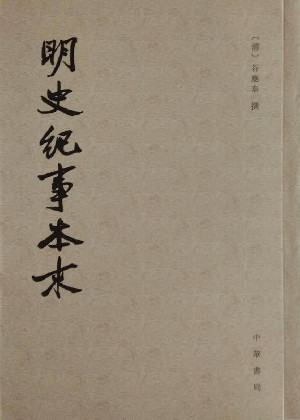 〔清〕谷應泰 撰
明史纪事本末
中華書局